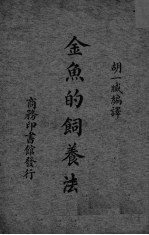 胡一瑊編譯
金魚的飼養法
商務印書館發行